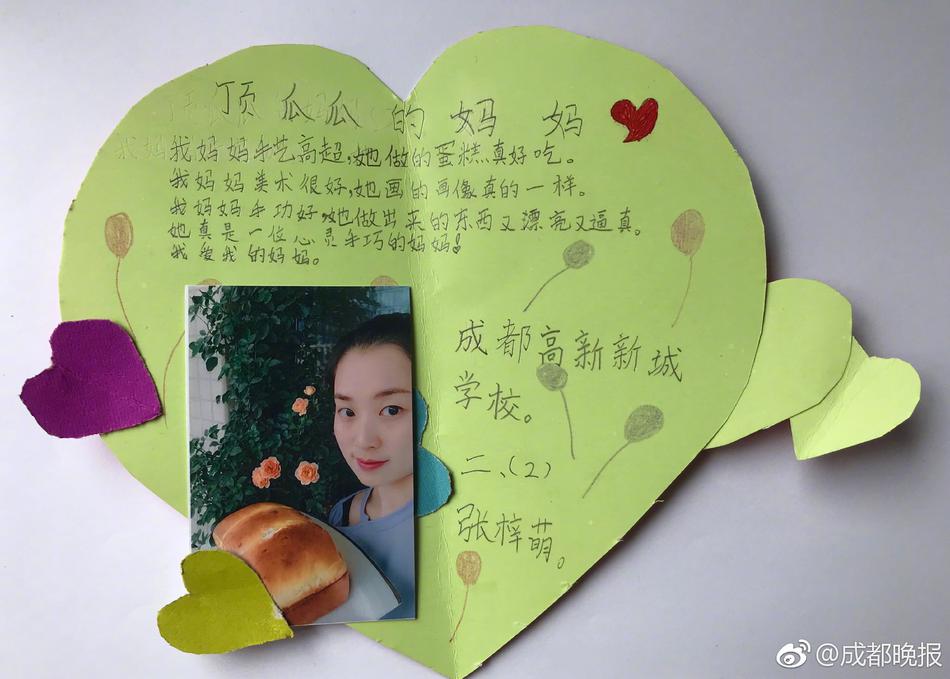 顶瓜瓜的妈妈
我妈妈手艺高超,她做的蛋糕真好吃。
我妈妈美术很好,她画的画像真的一样。
我妈妈手功好,她做出来的东西又漂亮又逼真。
她真是一位心灵手巧的妈妈!
我爱我的妈妈。
成都高新新城
学校。
二、(2)
张梓萌。
@成都晚报